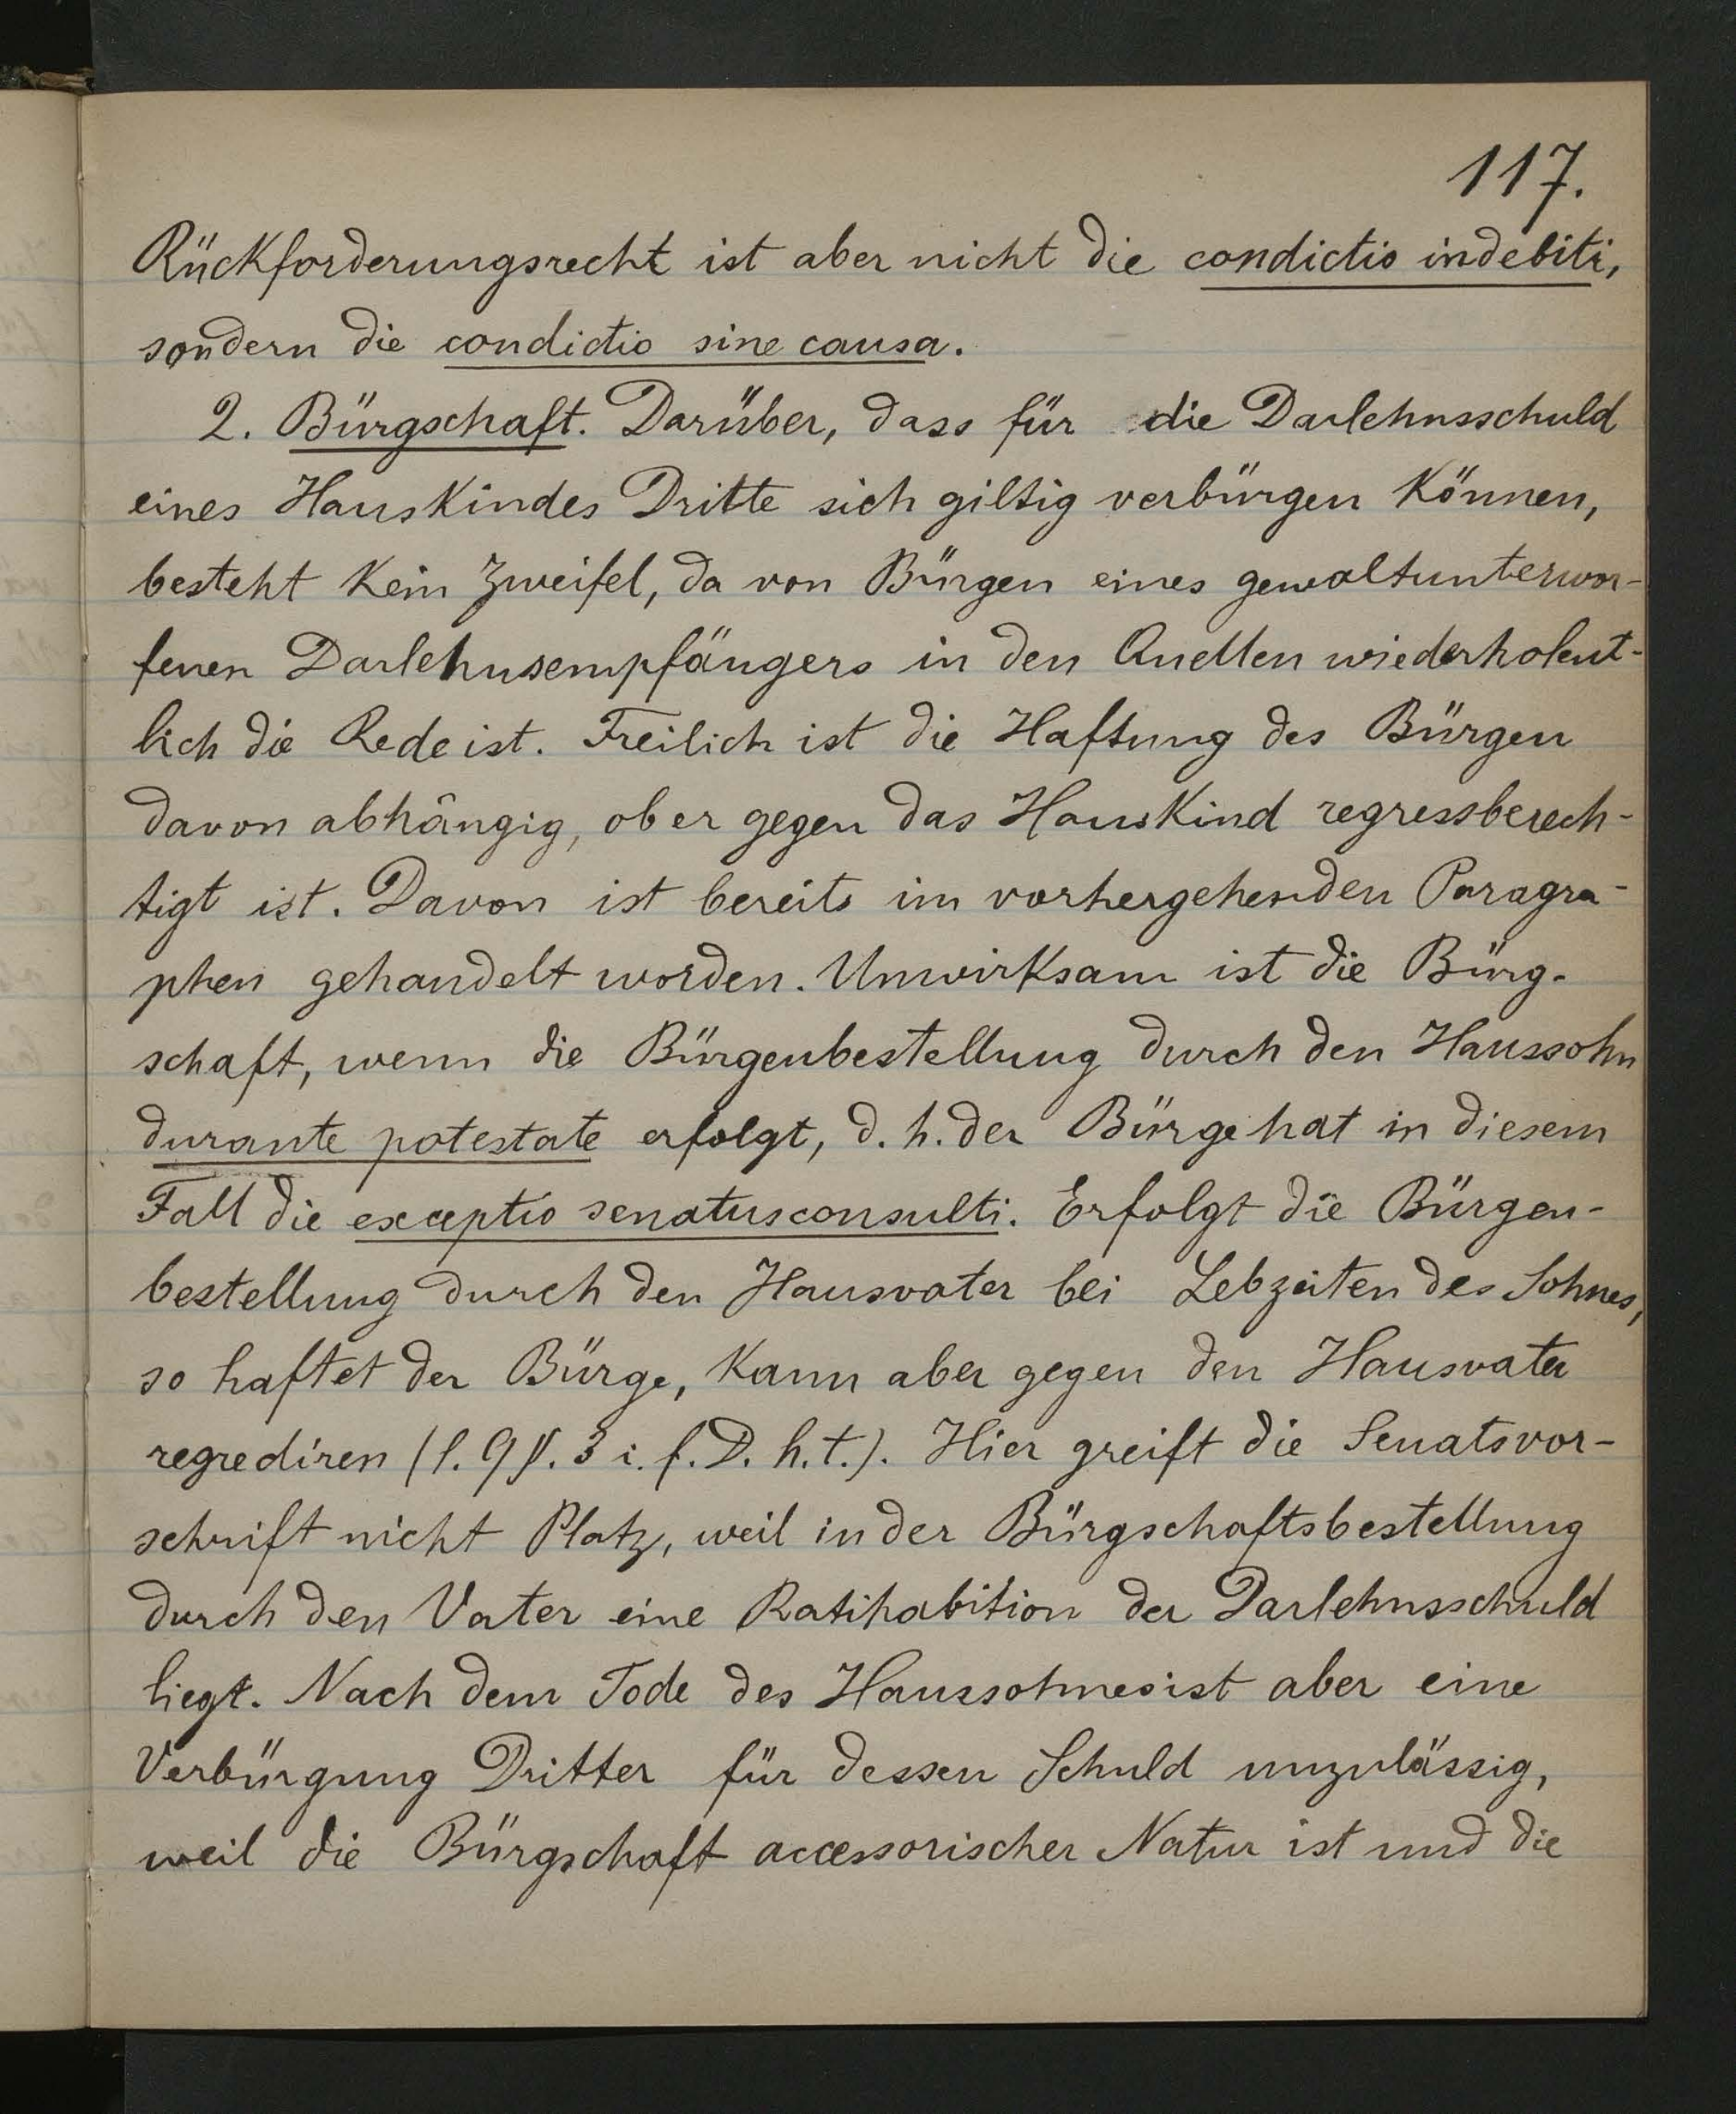 117.
Rückforderungsrecht ist aber nicht die condictio indebiti,
sondern die condictio sine causa.
2. Bürgschaft. Darüber, dass für die Darlehnsschuld
eines Hauskindes Dritte sich giltig verbürgen können,
besteht kein Zweifel, da von Bürgen eines gewaltunterwor-
fenen Darlehnsempfängers in den Quellen wiederholent-
lich die Rede ist. Freilich ist die Haftung des Bürgen
davon abhängig, ob er gegen das Hauskind regressberech-
tigt ist. Davon ist bereits im vorhergehenden Paragra-
phen gehandelt worden. Unwirksam ist die Bürg-
schaft, wenn die Bürgenbestellung durch den Haussohn
durante potestate erfolgt, d. h. der Bürge hat in diesem
Fall die exceptio senatusconsulti. Erfolgt die Bürgen-
bestellung durch den Hausvater bei Lebzeiten des Sohnes,
so haftet der Bürge, kann aber gegen den Hausvater
regrediren (l. 9 §. 3 i. f. D. h. t.). Hier greift die Senatsvor-
schrift nicht Platz, weil in der Bürgschaftsbestellung
durch den Vater eine Ratihabition der Darlehnsschuld
liegt. Nach dem Tode des Haussohnes ist aber eine
Verbürgung Dritter für dessen Schuld unzulässig,
weil die Bürgschaft accessorischer Natur ist und die